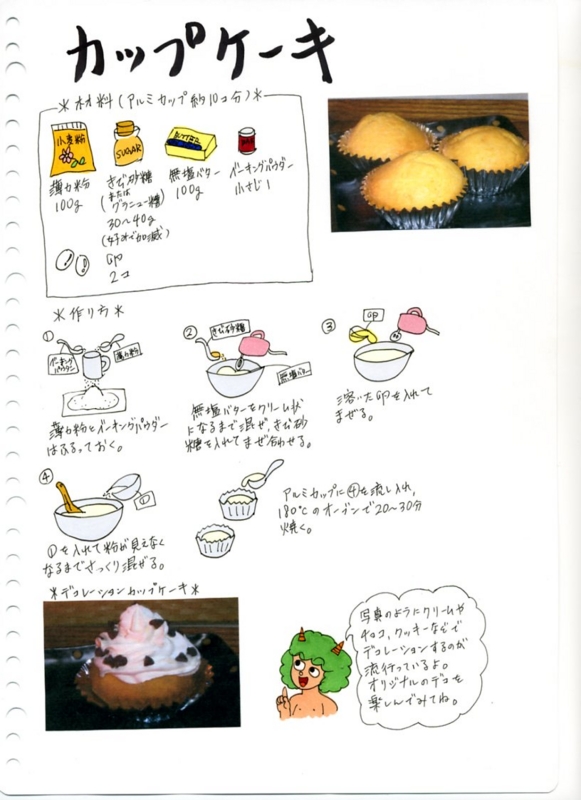 カップケーキ
＊材料(アルミカップ約10コ分)＊
小麦粉
SUGAR
BUTTER
薄力粉
100g
きび砂糖
(または
グラニュー糖)
30〜40g
(好みで加減)
無塩バター
100g
ベーキングパウダー
小さじ1
卵
2コ
＊作り方＊
①
ベーキング
パウダー
薄力粉
薄力粉とベーキングパウダー
はふるっておく。
②
きび砂糖
無塩バター
無塩バターをクリーム状
になるまで混ぜ、きび砂
糖を入れてまぜ合わせる。
③
卵
溶いた卵を入れて
まぜる。
④
①
①を入れて粉が見えなく
なるまでさっくり混ぜる。
アルミカップに④を流し入れ、
180℃のオーブンで20〜30分
焼く。
＊デコレーションカップケーキ＊
写真のようにクリームや
チョコ、クッキーなどで
デコレーションするのが
流行っているよ。
オリジナルのデコを
楽しんでみてね。